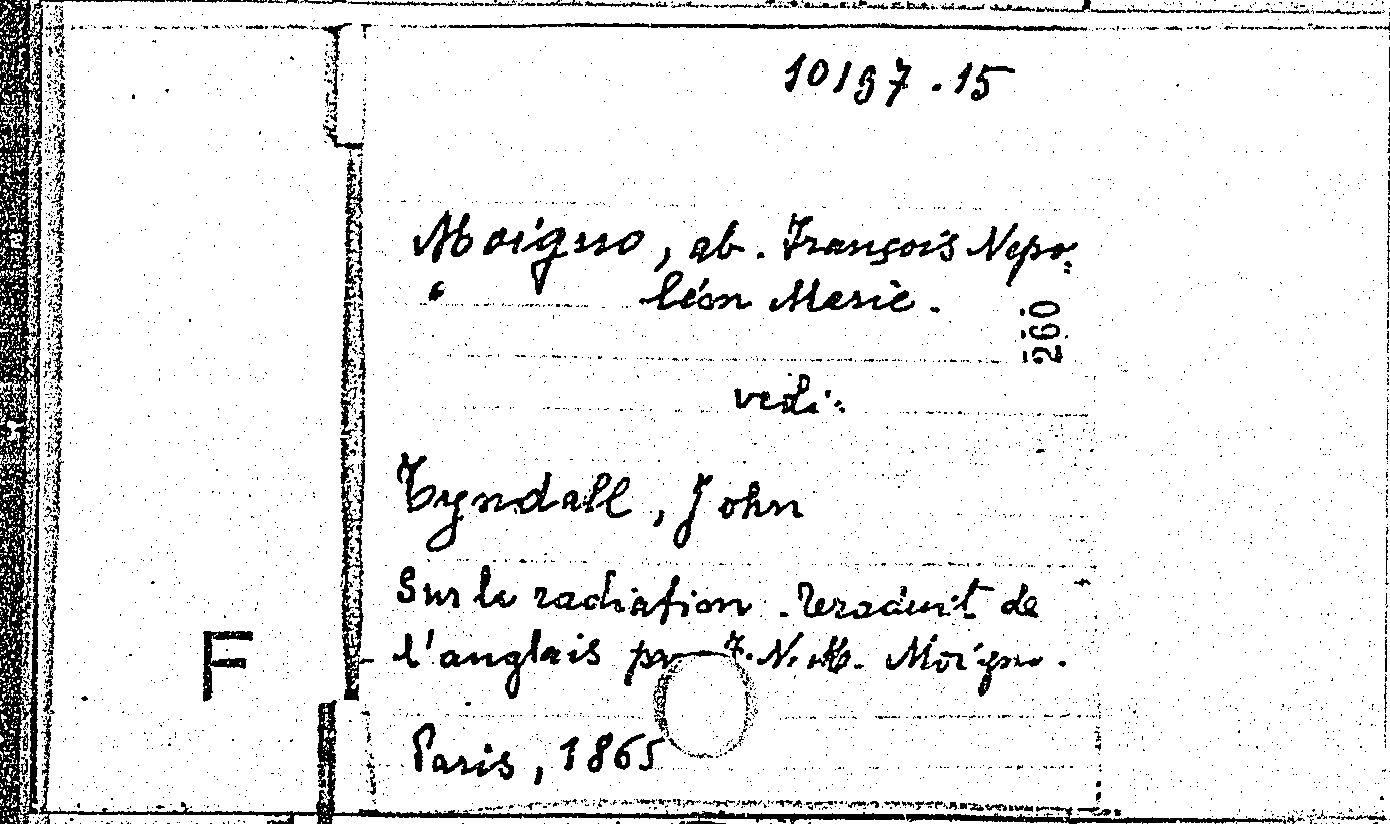 10197.15
Moigno, ab. François Nepo=
léon Marie.
260
vedi:
Tyndall, John
Sur la radiation. Traduit de
l'anglais par F. N. M. Moigno.
F
Paris, 1865